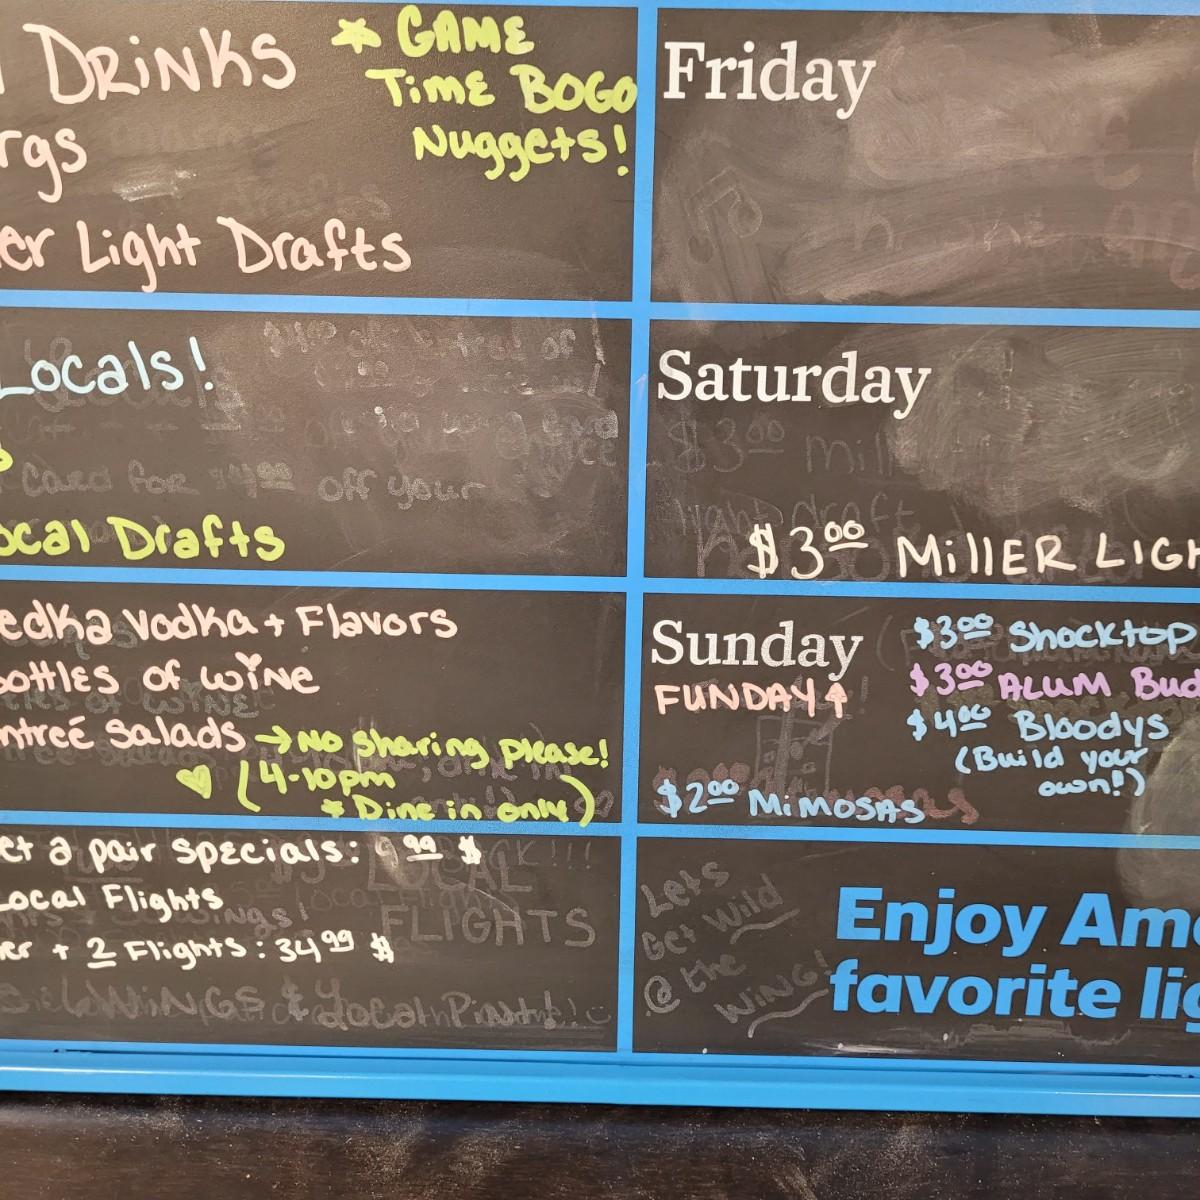 DRINKS
☆ GAME
TIME BOGO
Nuggets!
rgs
er Light Drafts
Locals!
ocal Drafts
edka vodka + Flavors
bottles of wine
ntreé Salads → No sharing please!
(4-10pm
* Dine in only)
et a pair specials: 9.99 $
Local Flights
er + 2 Flights: 34.99 $
LOCAL
FLIGHTS
Friday
Saturday
$3.00 Mill
light draft
$3.00 MillER LIGH
Sunday
FUNDAY↑
$3.00 Shocktop
$3.00 ALUM Bud
$4.00 Bloodys
(Build your
own!)
$2.00 MiMOSAS
Lets
Get Wild
@ the
WING!
Enjoy Ame
favorite lig